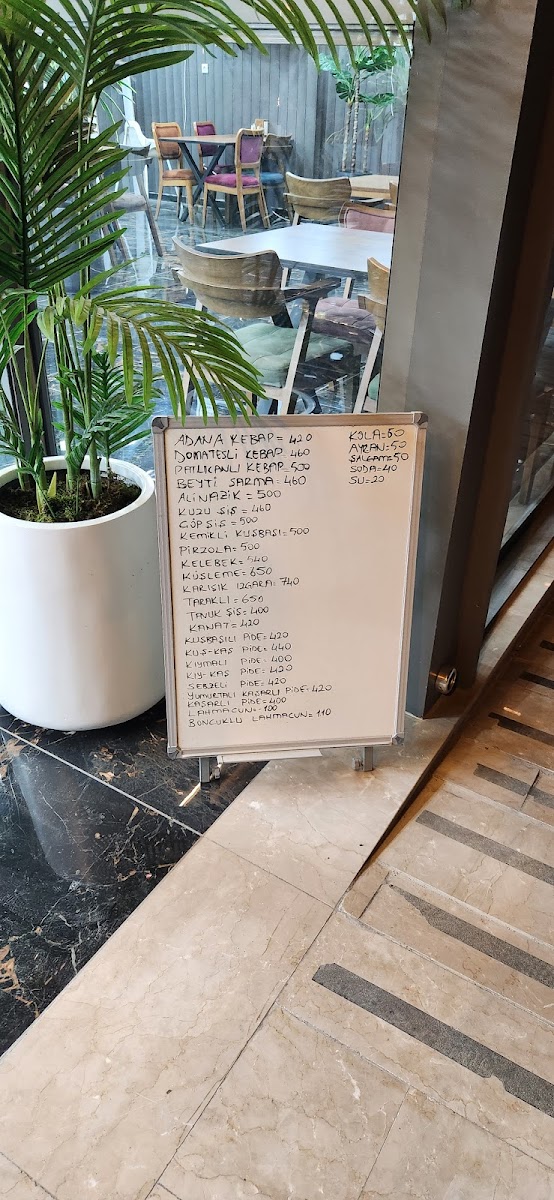 ADANA KEBAP = 420
DOMATESLİ KEBAP. 460
PATLICANLI KEBAP. 500
BEYTİ SARMA. 460
ALİNAZİK = 500
KUZU ŞİŞ = 460
ÇÖP ŞİŞ = 500
KEMİKLİ KUŞBAŞI = 500
PİRZOLA = 500
KELEBEK = 540
KÜŞLEME = 650
KARIŞIK IZGARA = 740
TARAKLI = 650
TAVUK ŞİŞ = 400
KANAT = 420
KUŞBAŞILI PİDE = 420
KUŞ-KAŞ PİDE = 440
KIYMALI PİDE. 400
KIY-KAŞ PİDE = 420
SEBZELİ PİDE = 420
YUMURTALI KAŞARLI PİDE - 420
KAŞARLI PİDE = 400
LAHMACUN = 100
BONCUKLU LAHMACUN = 110
KOLA = 50
AYRAN = 50
ŞALGAM = 50
SODA = 40
SU = 20